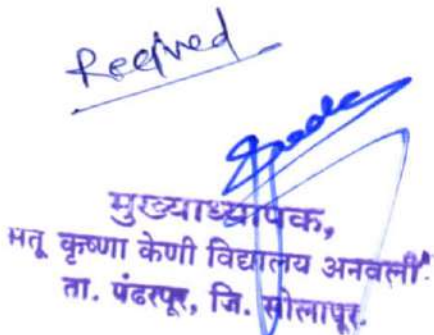 Received
मुख्याध्यापक,
मातृ कृष्णा केणी विद्यालय अनवली.
ता. पंढरपूर, जि. सोलापूर.